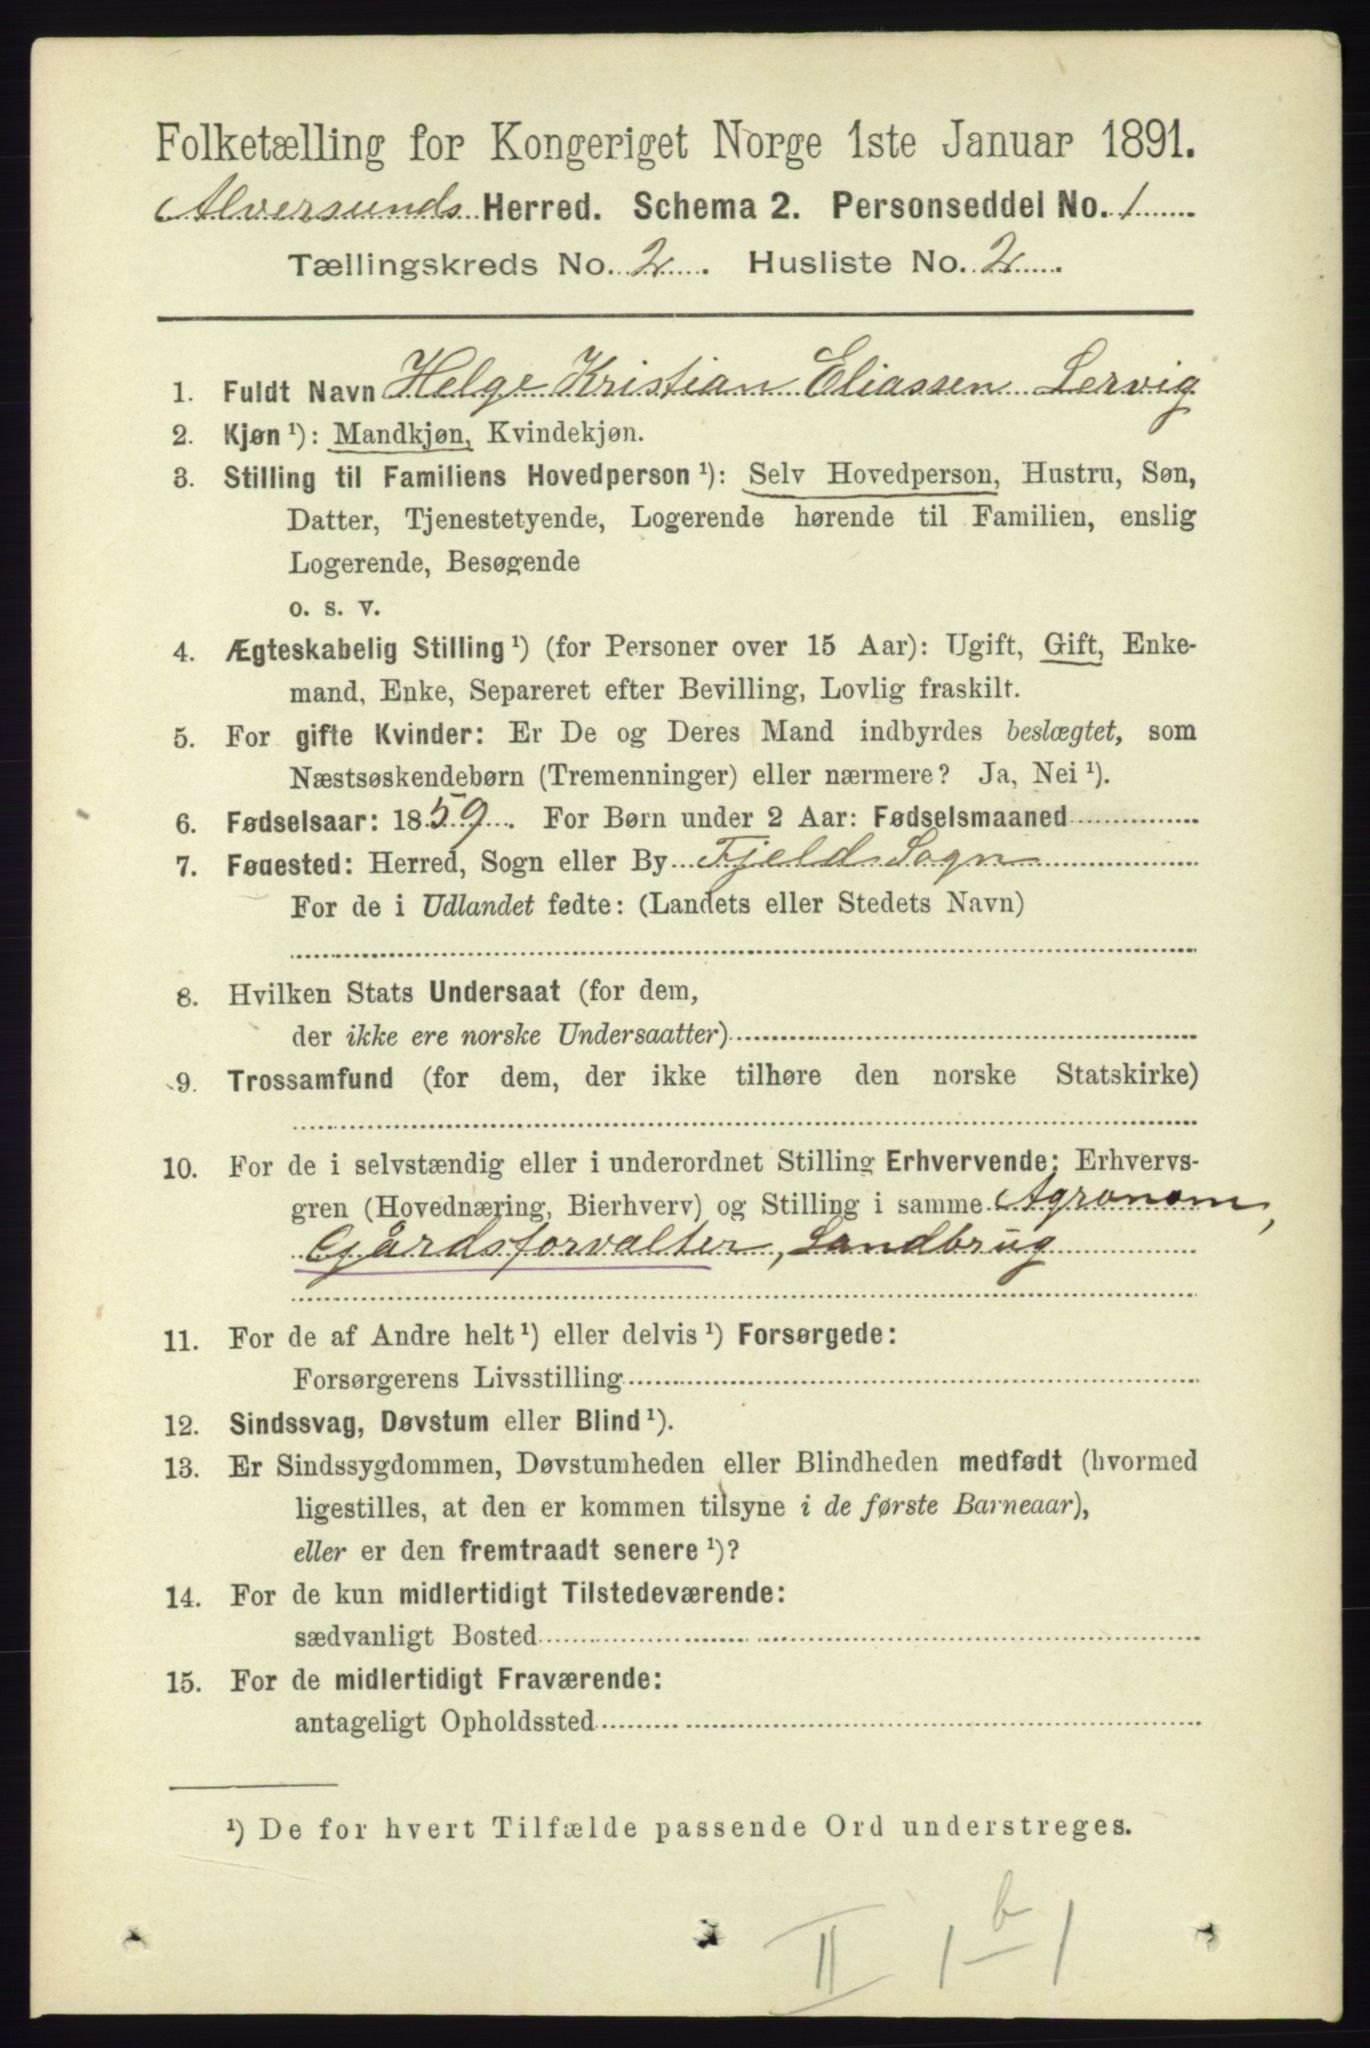 Folketælling for Kongeriget Norge 1ste Januar 1891.
Alversunds Herred. Schema 2. Personseddel No. 1
Tællingskreds No. 2. Husliste No. 2.
1. Fuldt Navn Helge Kristian Eliassen Lervig
2. Kjøn ¹): Mandkjøn, Kvindekjøn.
3. Stilling til Familiens Hovedperson ¹): Selv Hovedperson, Hustru, Søn,
Datter, Tjenestetyende, Logerende hørende til Familien, enslig
Logerende, Besøgende
o. s. v.
4. Ægteskabelig Stilling ¹) (for Personer over 15 Aar): Ugift, Gift, Enke-
mand, Enke, Separeret efter Bevilling, Lovlig fraskilt.
5. For gifte Kvinder: Er De og Deres Mand indbyrdes beslægtet, som
Næstsøskendebørn (Tremenninger) eller nærmere? Ja, Nei ¹).
6. Fødselsaar: 1859. For Børn under 2 Aar: Fødselsmaaned
7. Fødested: Herred, Sogn eller By Fjeld Sogn
For de i Udlandet fødte: (Landets eller Stedets Navn)
8. Hvilken Stats Undersaat (for dem,
der ikke ere norske Undersaatter)
9. Trossamfund (for dem, der ikke tilhøre den norske Statskirke)
10. For de i selvstændig eller i underordnet Stilling Erhvervende: Erhvervs-
gren (Hovednæring, Bierhverv) og Stilling i samme Agronom,
Gårdsforvalter, Landbrug
11. For de af Andre helt ¹) eller delvis ¹) Forsørgede:
Forsørgerens Livsstilling
12. Sindssvag, Døvstum eller Blind ¹).
13. Er Sindssygdommen, Døvstumheden eller Blindheden medfødt (hvormed
ligestilles, at den er kommen tilsyne i de første Barneaar),
eller er den fremtraadt senere ¹)?
14. For de kun midlertidigt Tilstedeværende:
sædvanligt Bosted
15. For de midlertidigt Fraværende:
antageligt Opholdssted
¹) De for hvert Tilfælde passende Ord understreges.
II 1 b 1